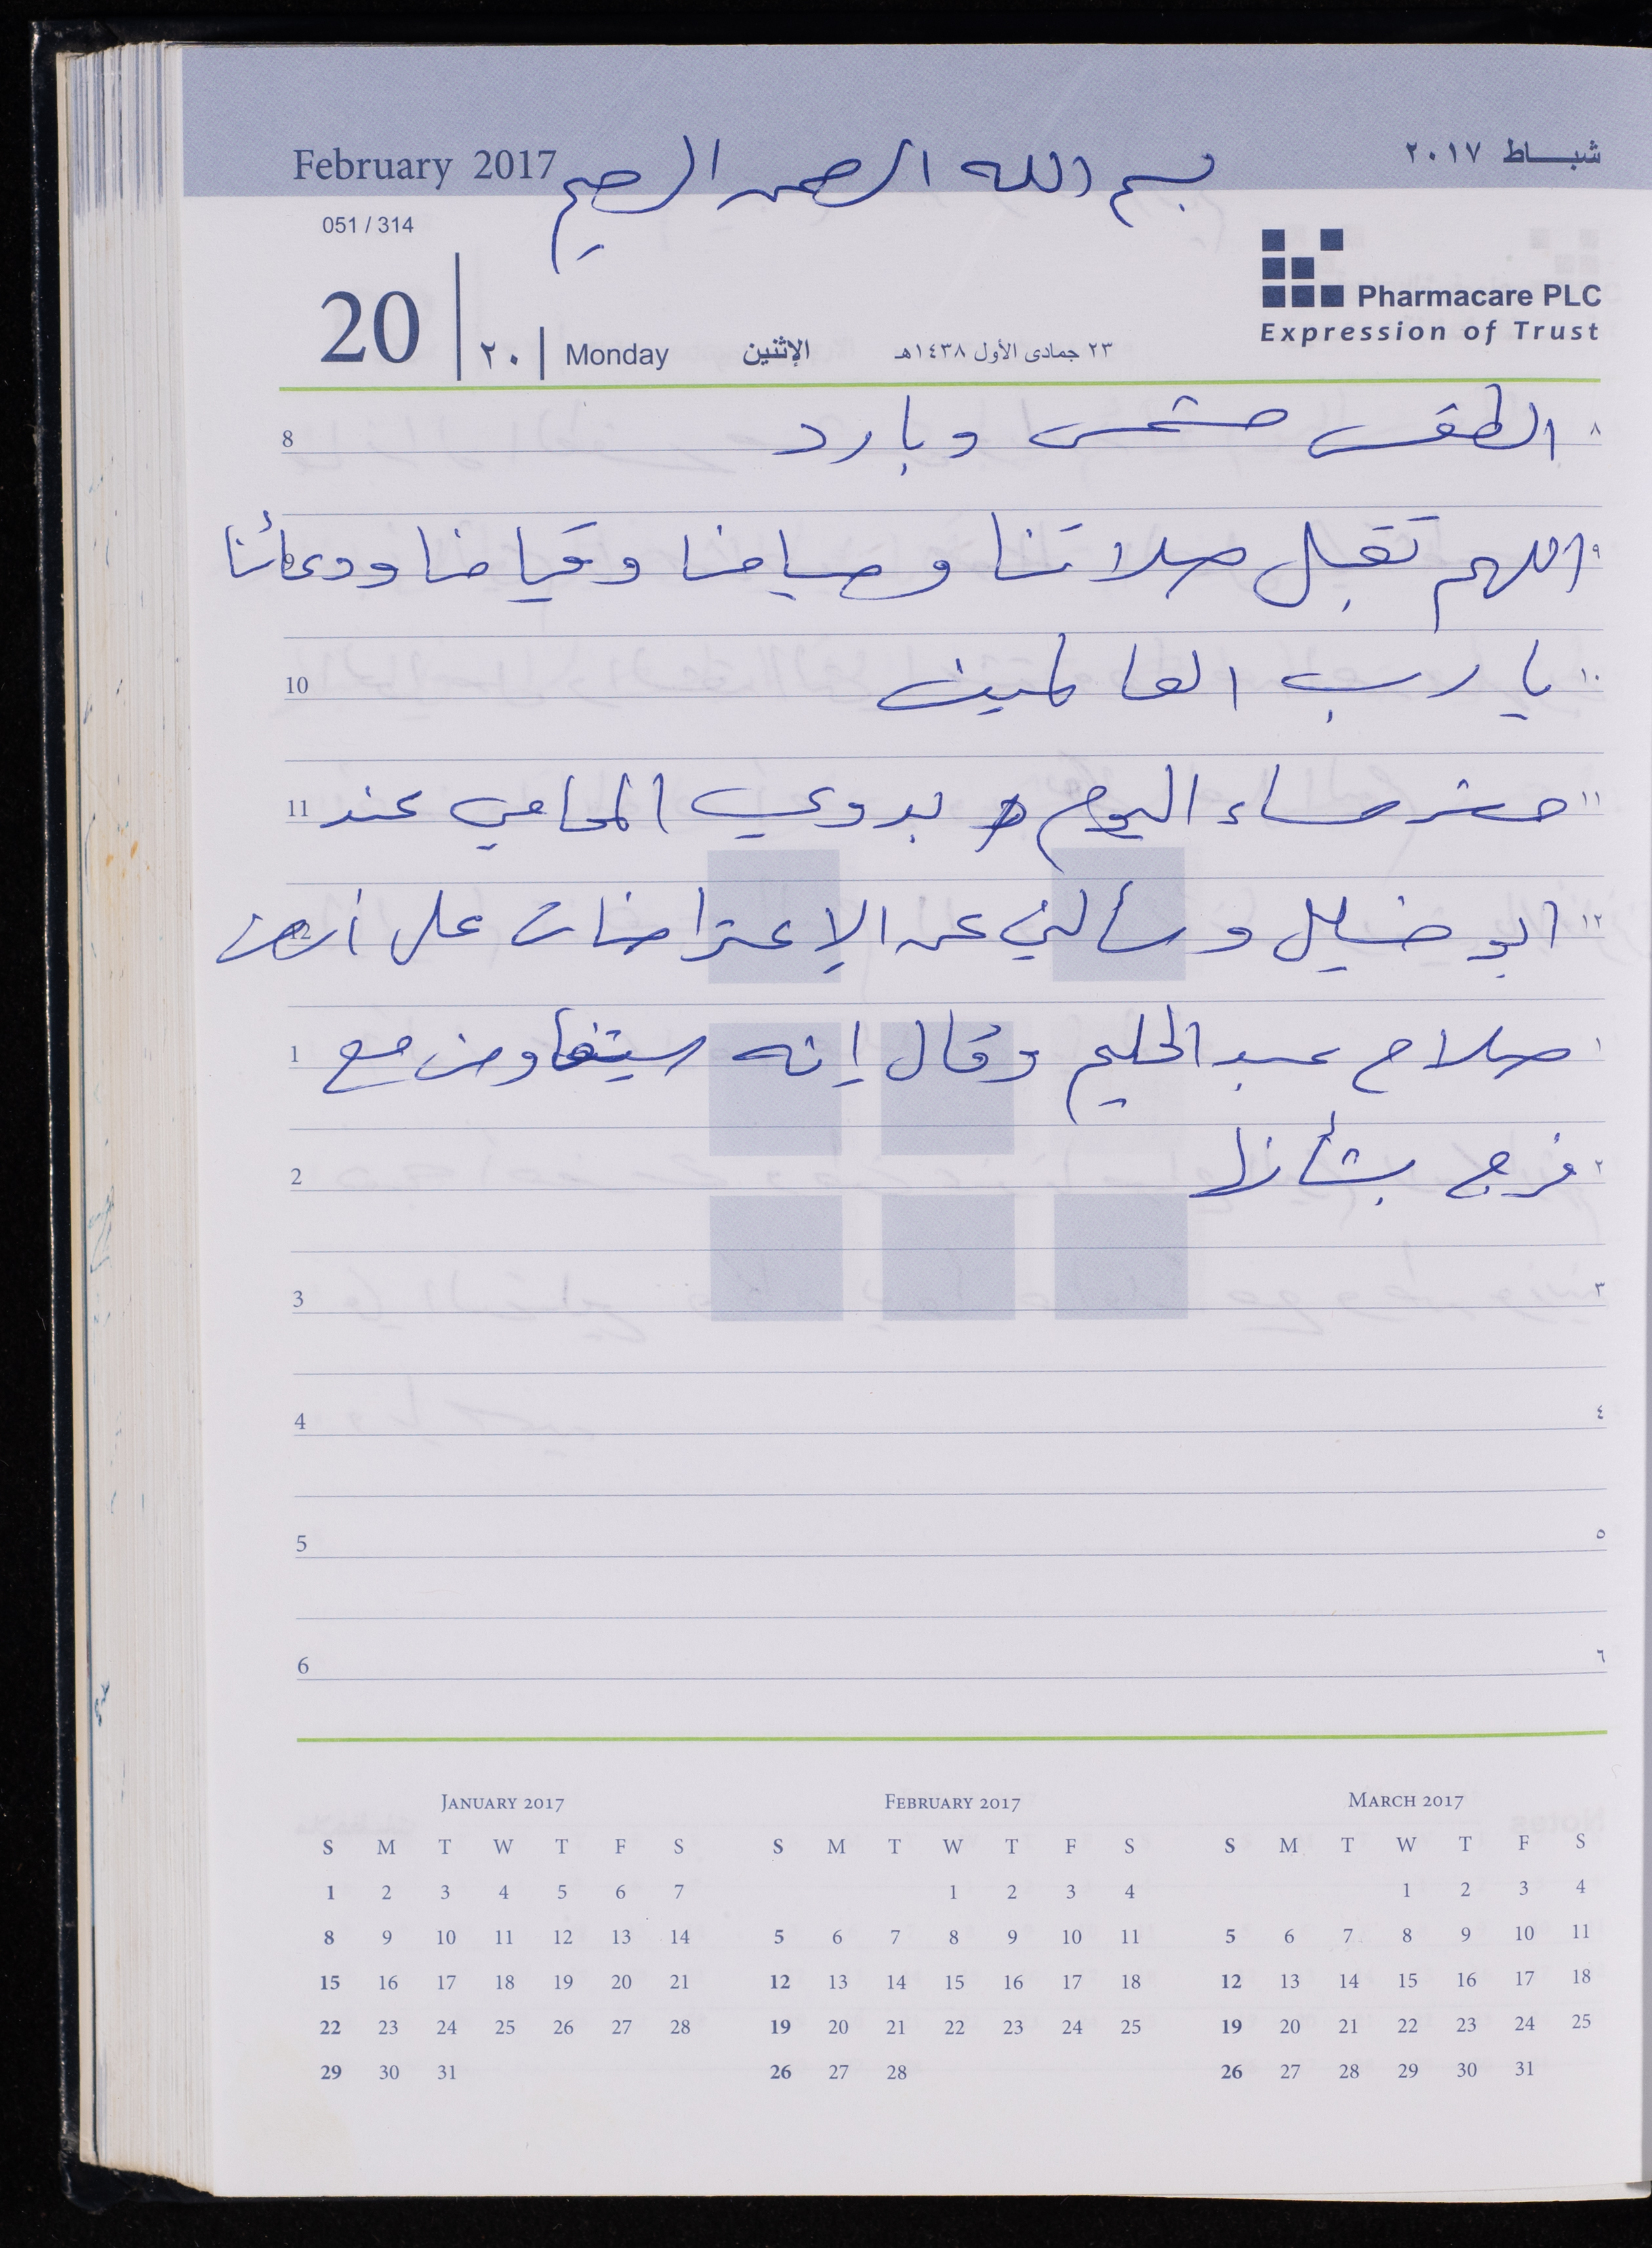 February 2017 بسم الله الرحمن الرحيم شبـــاط ٢٠١٧
051 / 314
Pharmacare PLC
Expression of Trust
20 ٢٠ Monday الإثنين ٢٣ جمادى الأول ١٤٣٨هـ
8 الطقس مشمس وبارد ٨
9 اللهم تقبل صلاتنا وصيامنا وقيامنا ودعائنا ٩
10 يا رب العالمين ١٠
11 حضر مساء اليوم بدوي المحامي عند ١١
12 ابو خليل وسألني عن الإعتراضات على أرض ١٢
1 صلاح عبد الحليم وقال إنه سيتفاوض مع ١
2 فرج بشأنها ٢
3 ٣
4 ٤
5 ٥
6 ٦
JANUARY 2017
S M T W T F S
1 2 3 4 5 6 7
8 9 10 11 12 13 14
15 16 17 18 19 20 21
22 23 24 25 26 27 28
29 30 31
FEBRUARY 2017
S M T W T F S
1 2 3 4
5 6 7 8 9 10 11
12 13 14 15 16 17 18
19 20 21 22 23 24 25
26 27 28
MARCH 2017
S M T W T F S
1 2 3 4
5 6 7 8 9 10 11
12 13 14 15 16 17 18
19 20 21 22 23 24 25
26 27 28 29 30 31